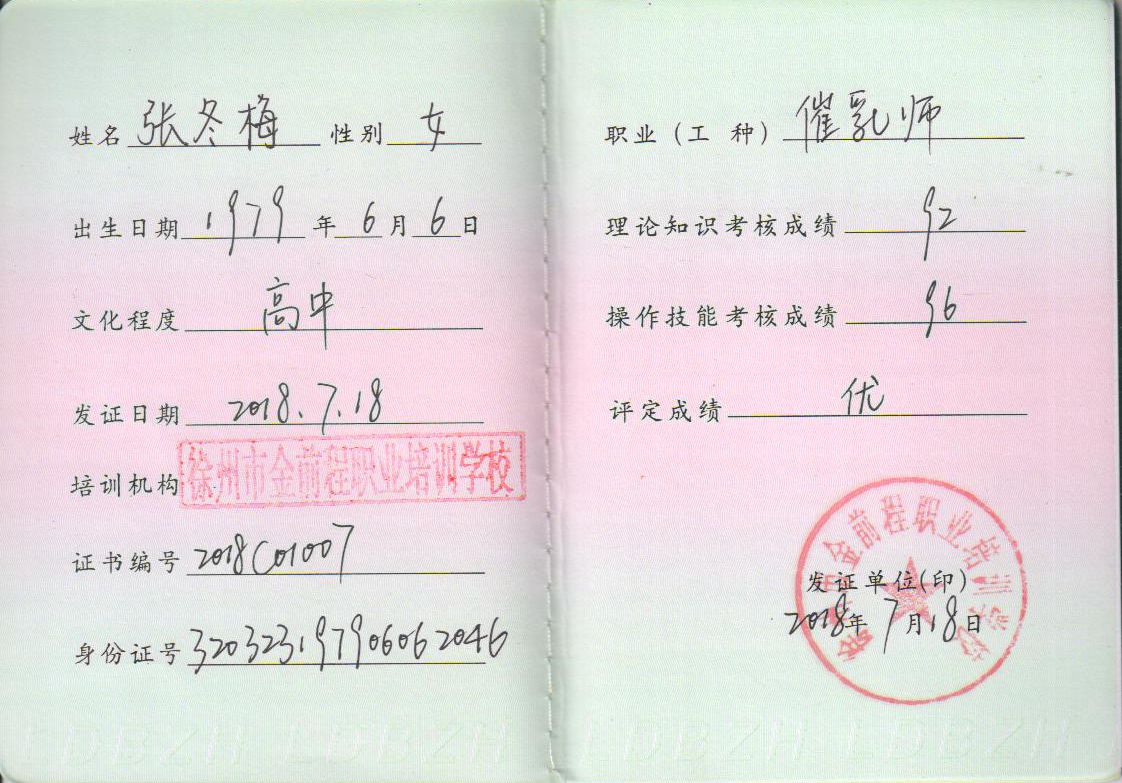 姓名 张冬梅 性别 女
出生日期 1979 年 6 月 6 日
文化程度 高中
发证日期 2018.7.18
培训机构 徐州市金前程职业培训学校
证书编号 2018C01007
身份证号 320323197906062046
职业（工 种） 催乳师
理论知识考核成绩 92
操作技能考核成绩 96
评定成绩 优
徐州市金前程职业培训学校
发证单位(印)
2018年 7月18日
LDBZH LDBZH
LDBZH LDBZH